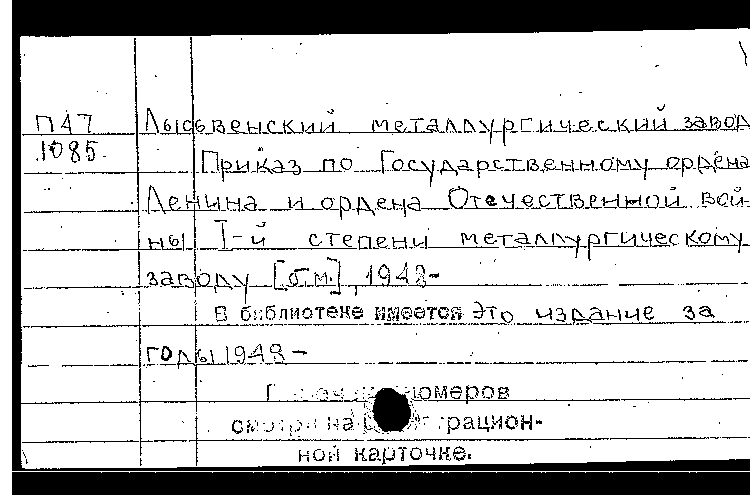 П47 Лысьвенский металлургический завод
1085 Приказ по Государственному ордена
Ленина и ордена Отечественной вой
ны I-й степени металлургическому
заводу [б.м.], 1948-
В библиотеке имеется это издание за
годы 1948-
номеров
смотри на
ной карточке.